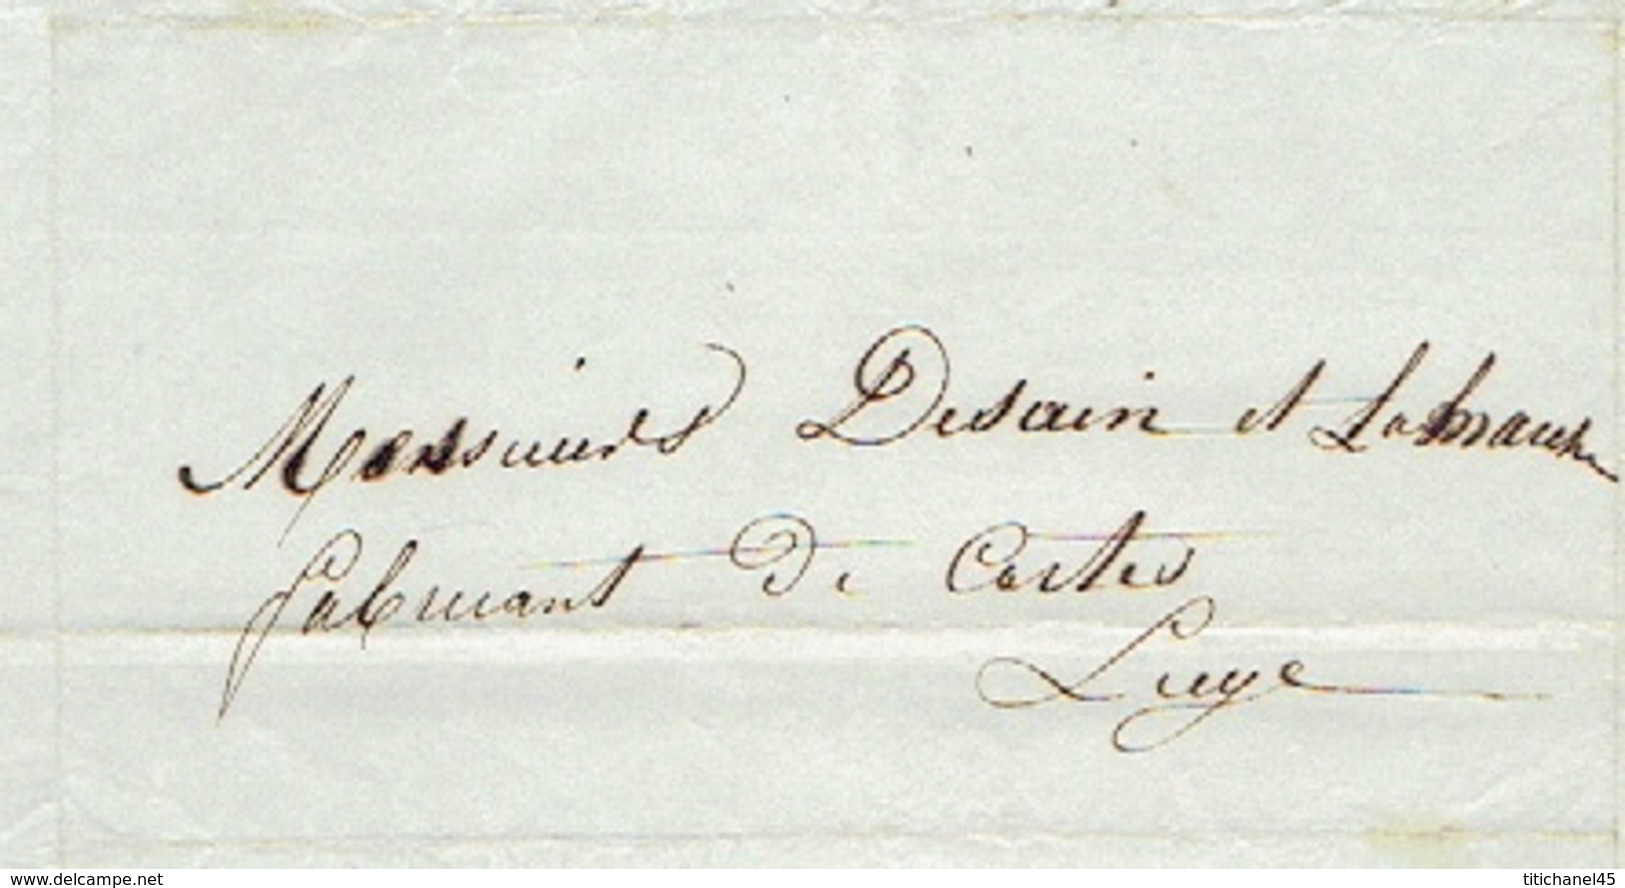 Messieurs Desain et
fabricant de Cartes
Liege
www.delcampe.net
titichanel45